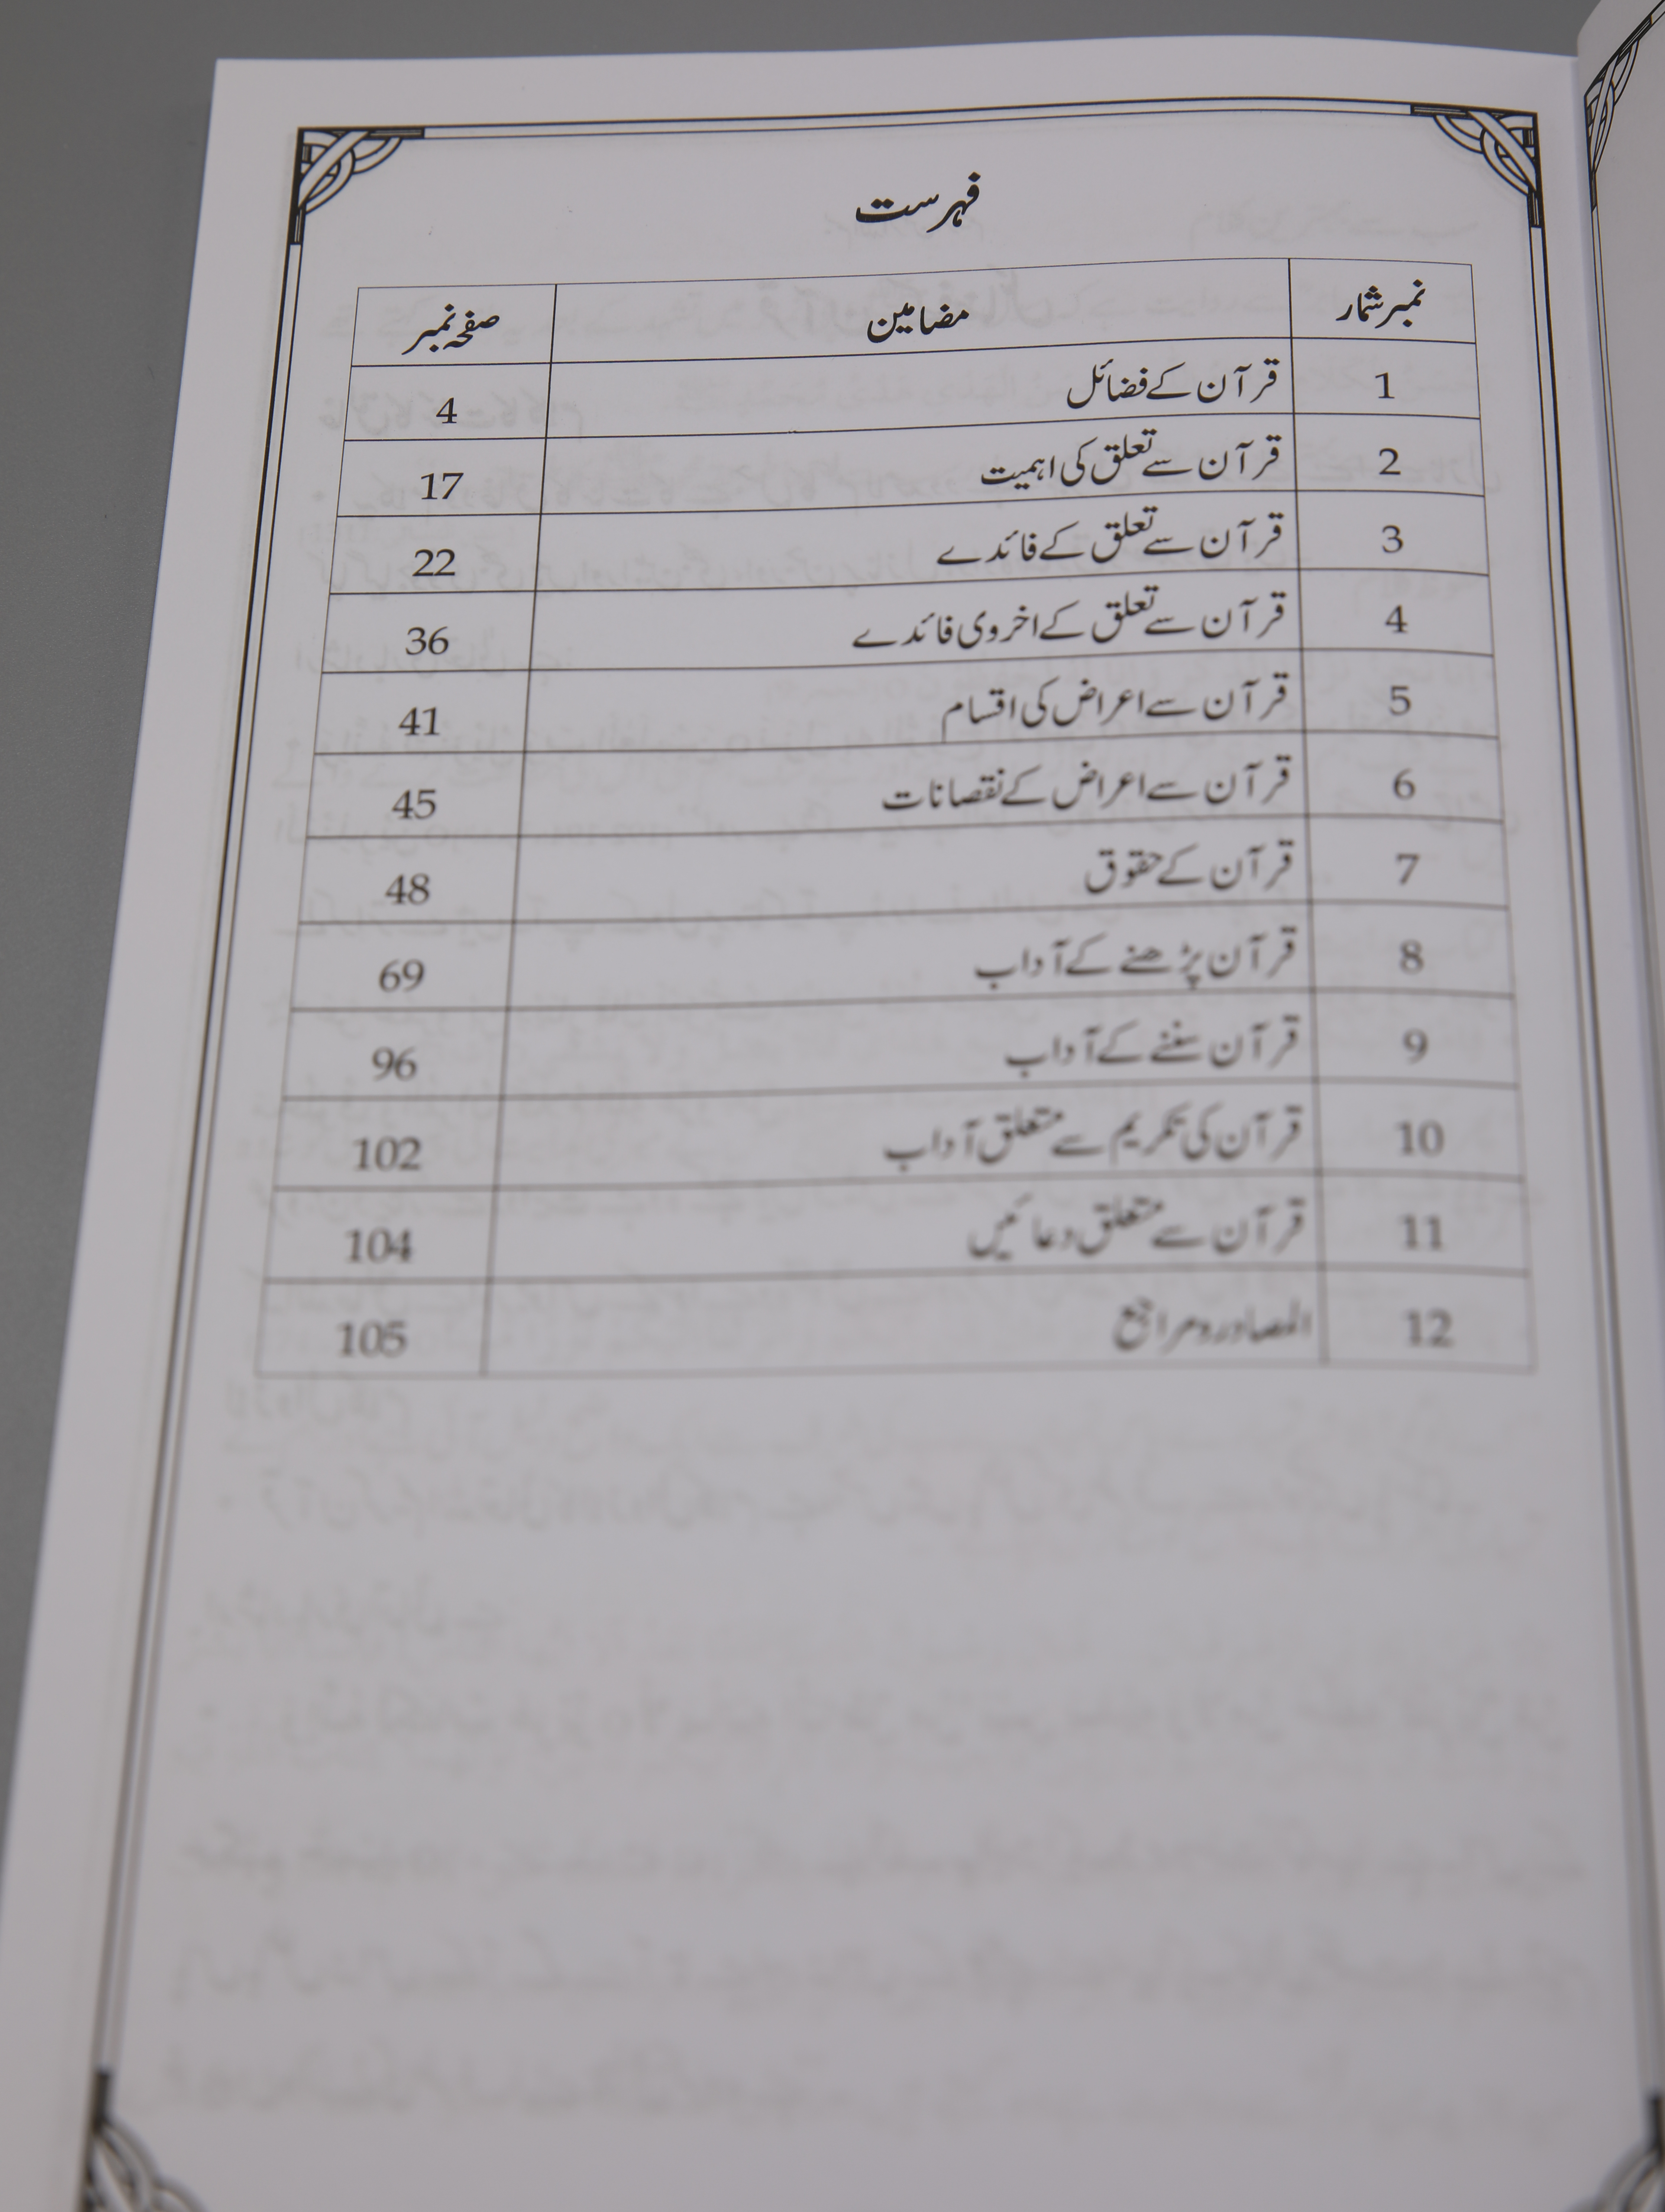 فہرست
نمبر شمار مضامین صفحہ نمبر
1 قرآن کے فضائل 4
2 قرآن سے تعلق کی اہمیت 17
3 قرآن سے تعلق کے فائدے 22
4 قرآن سے تعلق کے اخروی فائدے 36
5 قرآن سے اعراض کی اقسام 41
6 قرآن سے اعراض کے نقصانات 45
7 قرآن کے حقوق 48
8 قرآن پڑھنے کے آداب 69
9 قرآن سننے کے آداب 96
10 قرآن کی تکریم سے متعلق آداب 102
11 قرآن سے متعلق دعائیں 104
12 المصادر و مراجع 105